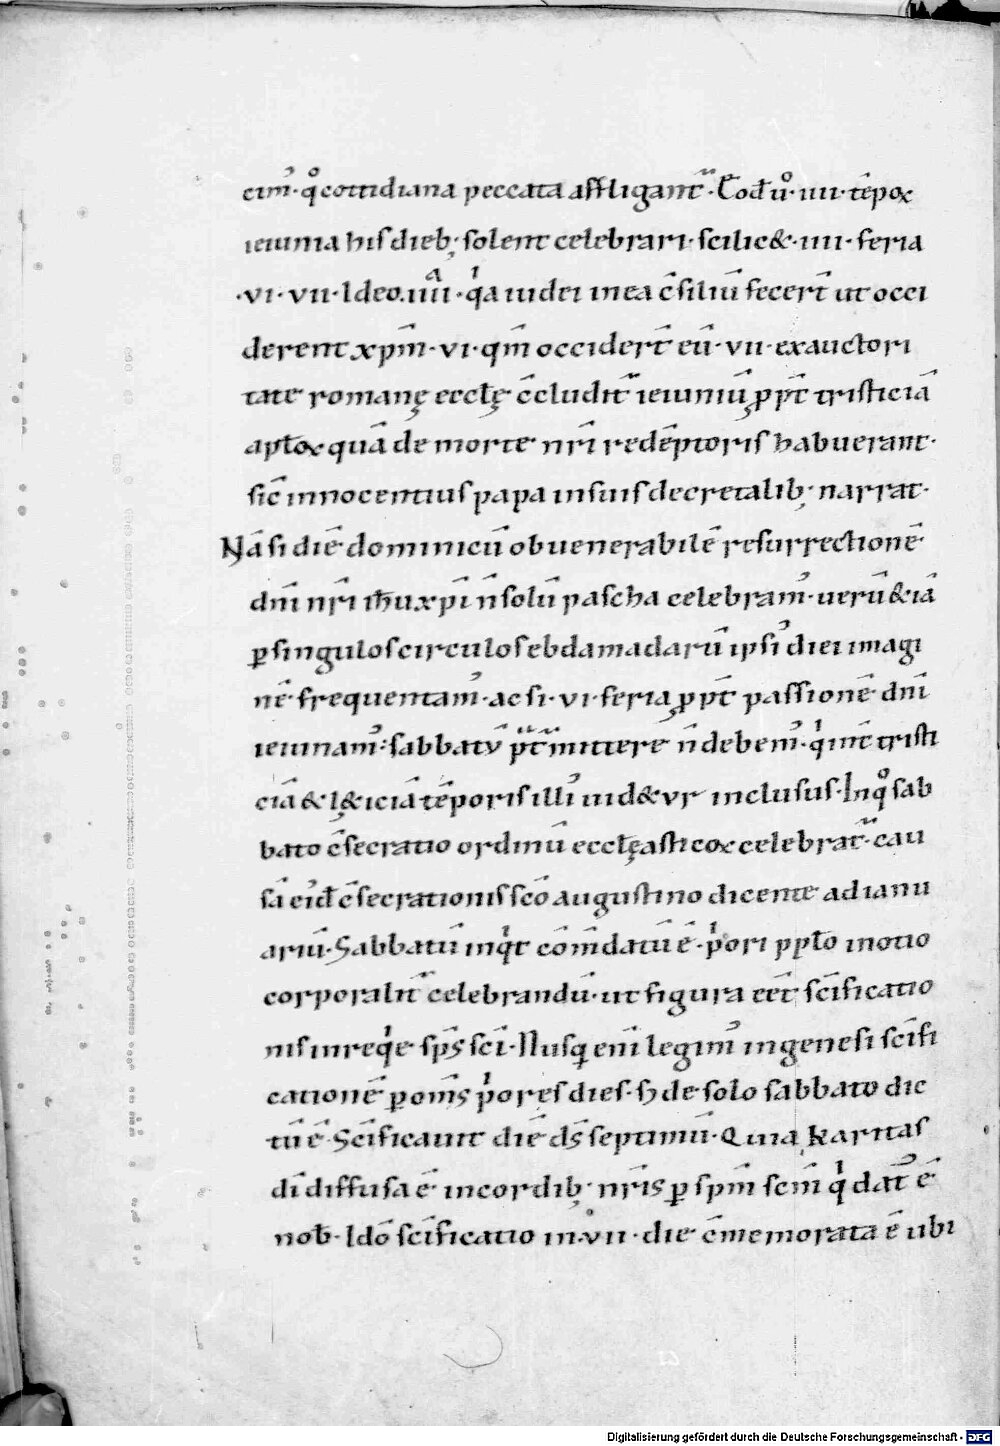 eim᷒· qͦ cottidiana peccata affligant᷑· Eod̅ uͦ· iiii· te̅poꝝ
ieiunia his dieb; solent celebrari· scilic&· iiii· feria
·vi· vii· Ideo· iiiiᵃ· qⁱa iudei in ea c̅siliu̅ fecer̅t ut occi
derent xp̅m· vi· qm̅ occider̅t eu̅· vii· ex auctori
tate romanę eccl̅ę c̅cludit᷑ ieiuniu̅ ꝓpt̅ tristicia̅
apl̅oꝝ qua̅ de morte nr̅i rede̅ptoris habuerant·
sic̅ innocentius papa in suis decretalib; narrat·
Na̅ si die̅ dominicu̅ ob uenerabile̅ resurrectione̅
dn̅i nr̅i ih̅u xp̅i n̅ solu̅ pascha celebram᷒· ueru̅ &ia̅
ꝑ singulos circulos ebdamadaru̅ ipsi᷒ diei imagi
ne̅ frequentam᷒· ac si· vi· feria ꝓpt̅ passione̅ dn̅i
ieiunam᷒: sabbatu̅ p̅t̅mittere n̅ debem᷒· qⁱ int̅ tristi
cia̅ & l&icia̅ te̅poris illi᷒ uid&ur inclusus· In qͦ sab
bato c̅secratio ordinu̅ eccl̅ęasticoꝝ celebrat᷑· cau
sa̅ ei᷒d̅ c̅secrationis sc̅o augustino dicente ad ianu
ariu̅· Sabbatu̅ inqⁱt co̅m̅datu̅ e̅· pⁱori ppl̅o in otio
corporalit̅ celebrandu̅· ut figura eet̅ sc̅ificatio
nis in reqⁱe sp̅s sc̅i· Nusq̅ eni̅ legim᷒ in genesi sc̅ifi
catione̅ ꝑ om̅s pⁱores dies· sꝫ de solo sabbato dic
tu̅ e̅· Sc̅ificauit die̅ ds̅ septimu̅· Quia karitas
di̅ diffusa e̅ in cordib; nr̅is ꝑ sp̅m sc̅m qⁱ dat᷒ e̅
nob̅· Ido̅ sc̅ificatio in· vii· die c̅memorata e̅ ubi
Digitalisierung gefördert durch die Deutsche Forschungsgemeinschaft - DFG